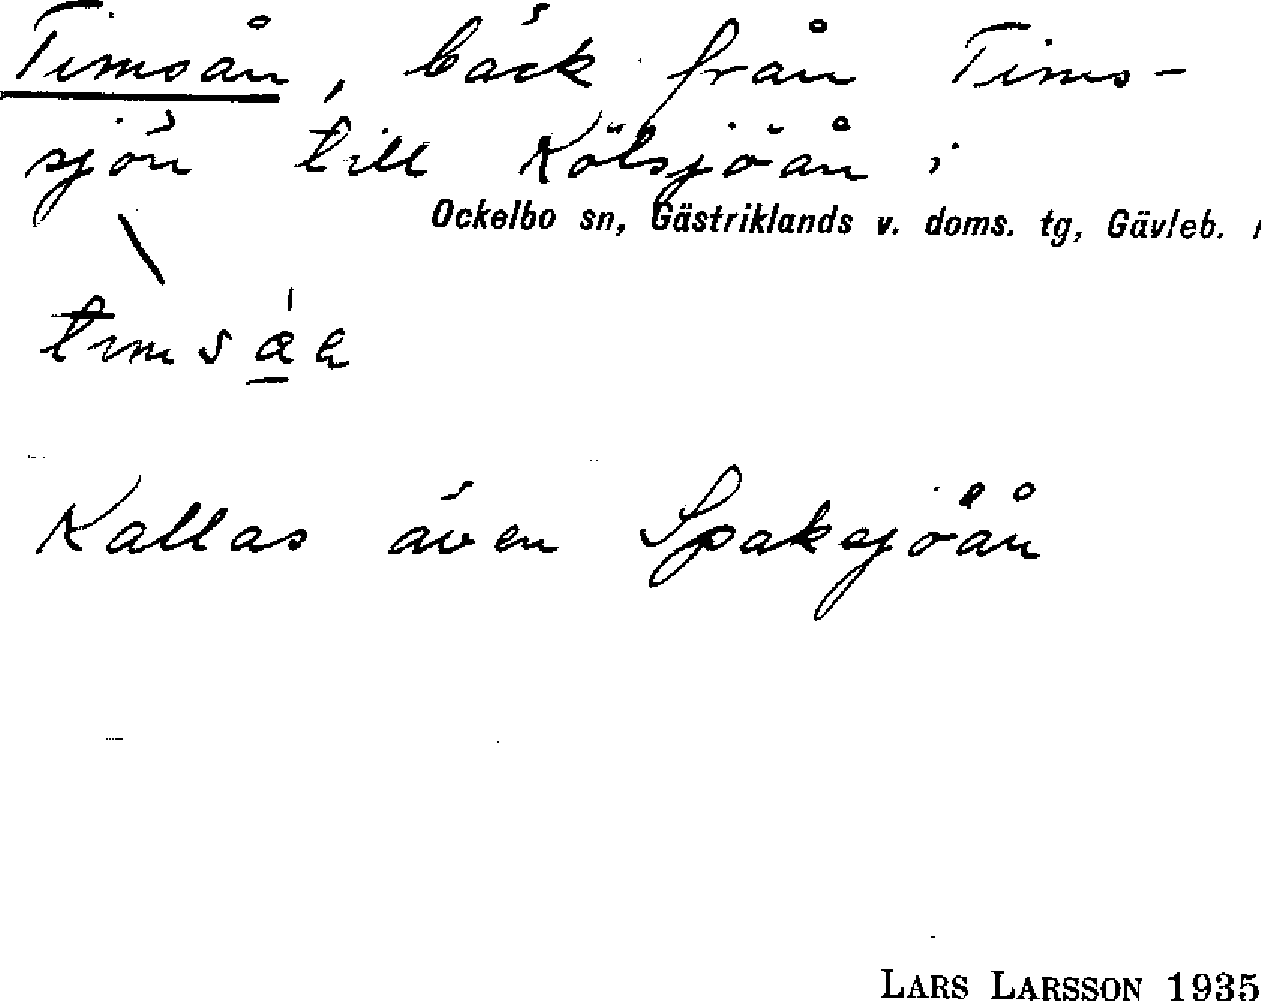 Timsån, bäck från Tims-
sjön till Kölsjöån i
Ockelbo sn, Gästriklands v. doms. tg, Gävleb.
Kallas även Spaksjöån
LARS LARSSON 1935